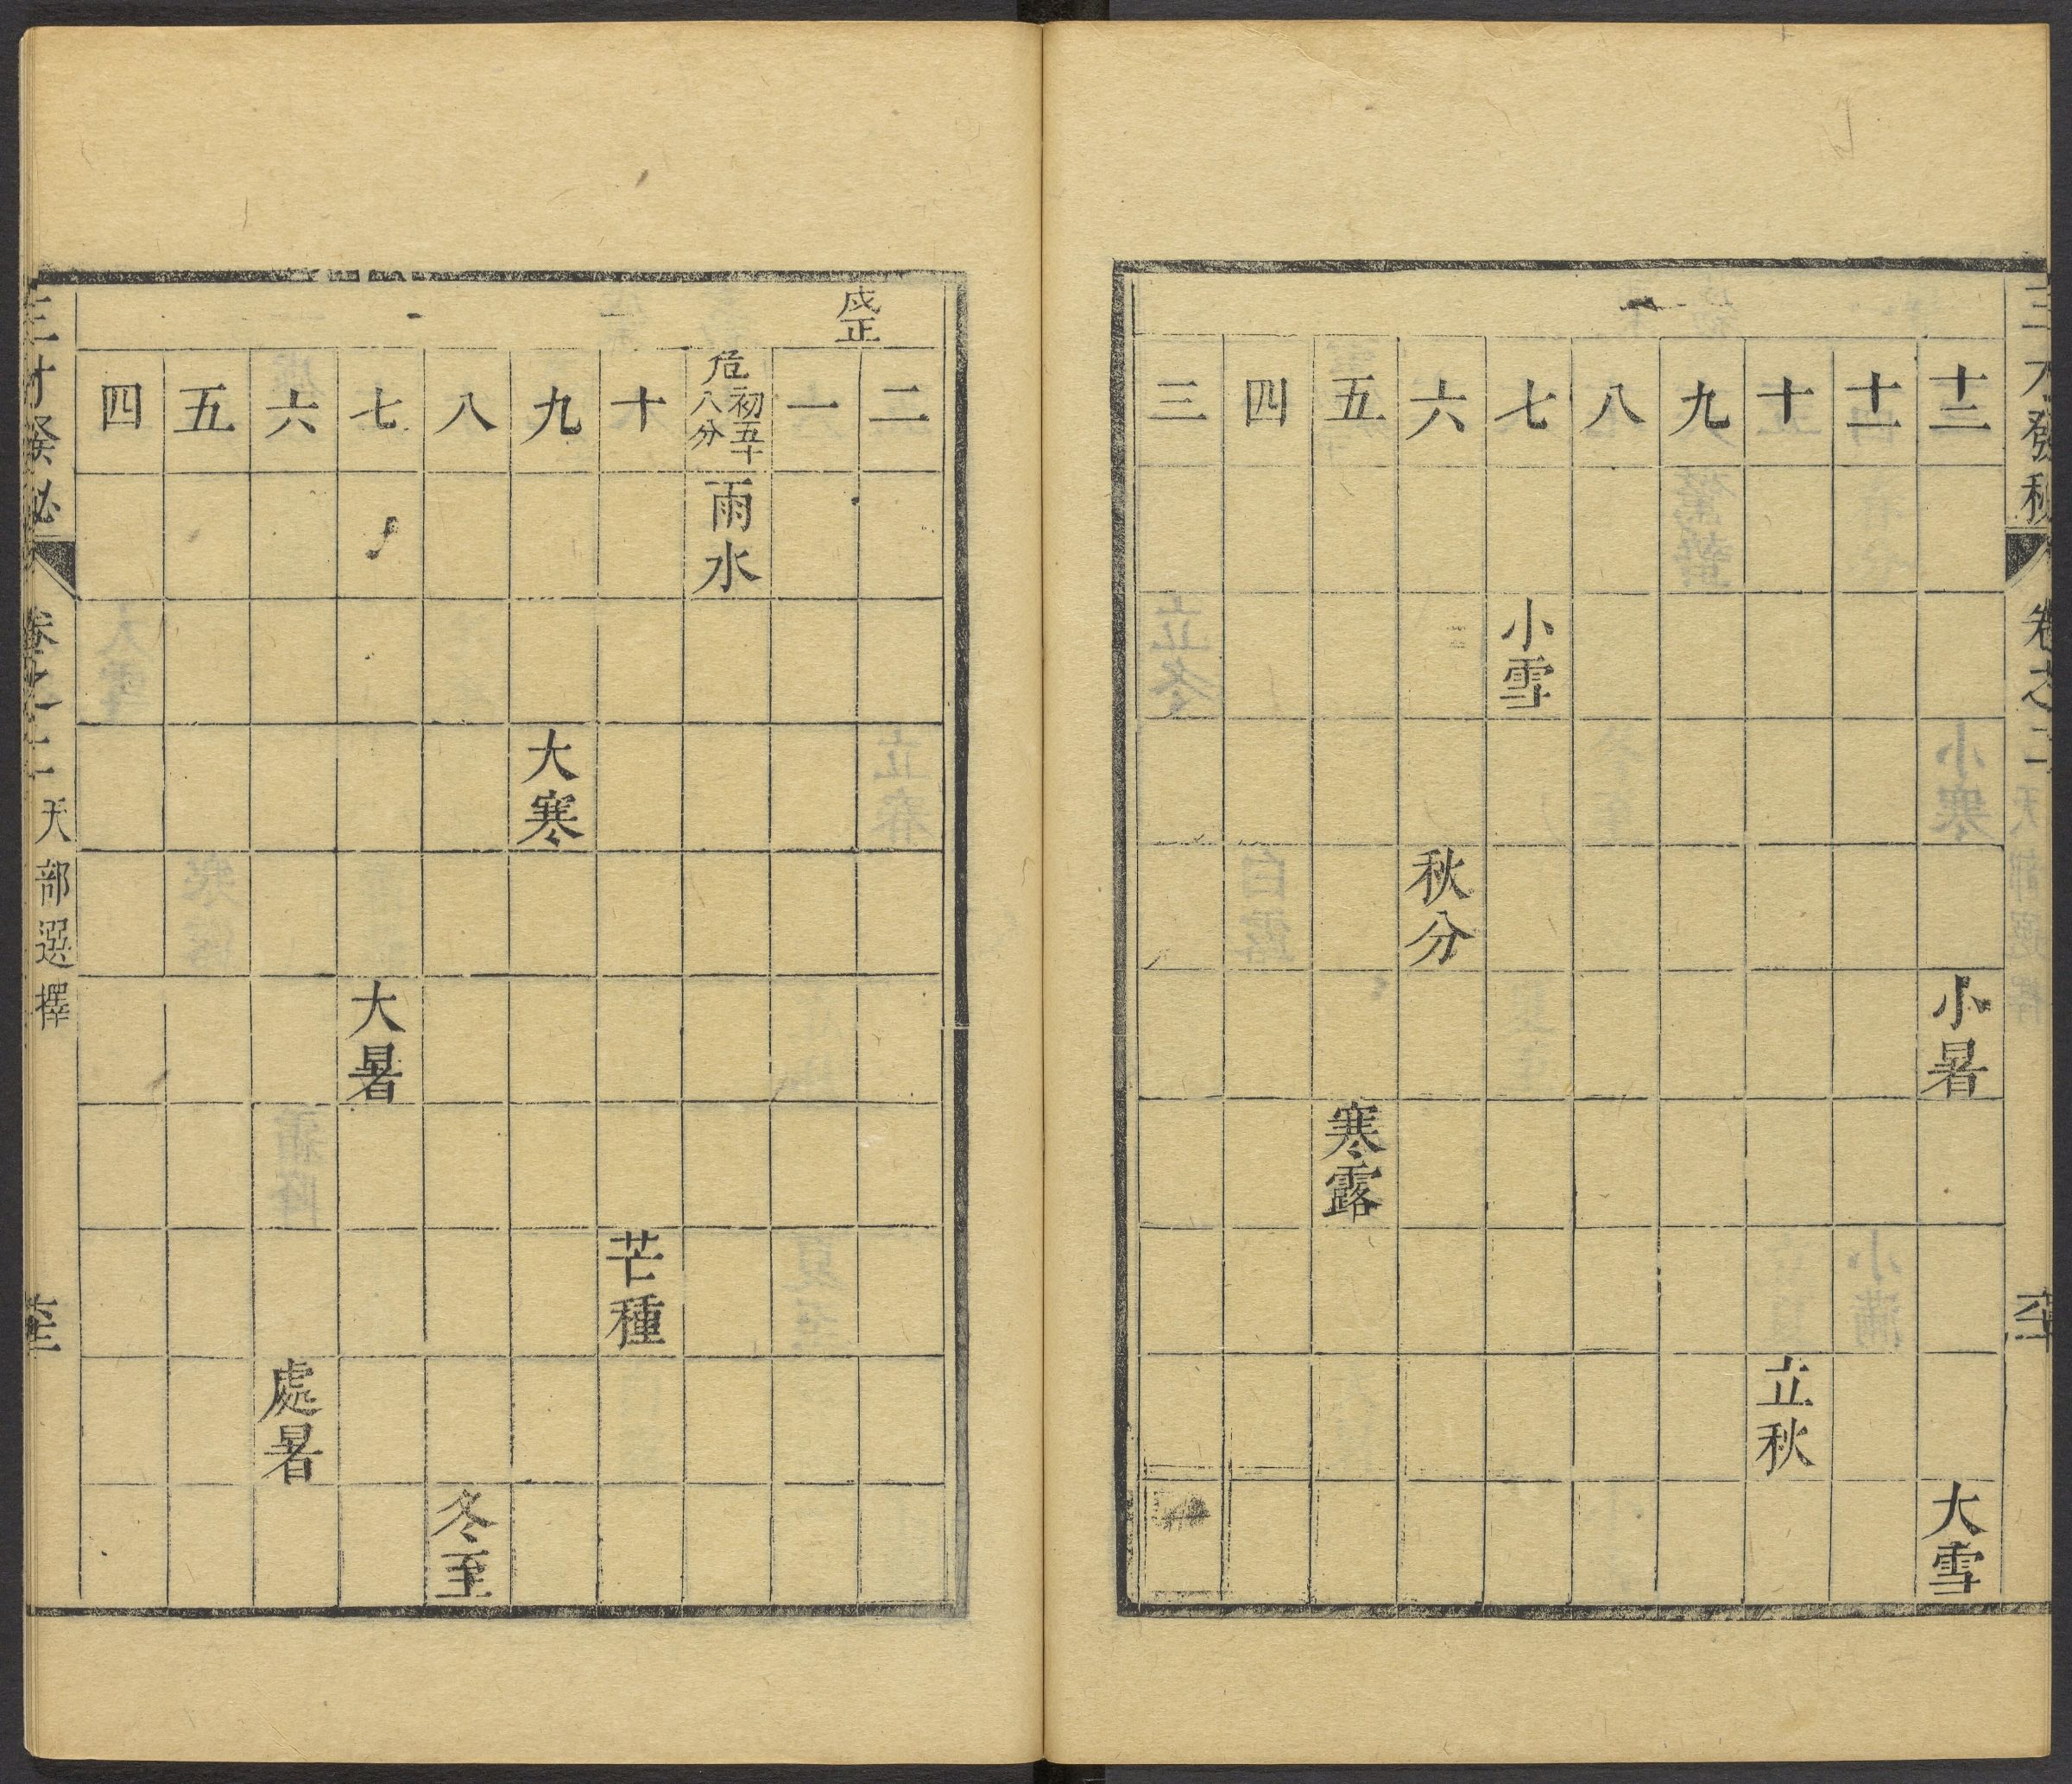 三才發秘
卷之二
天部選擇
十二
小暑
大雪
十一
十
立秋
九
八
七
小雪
六
秋分
五
寒露
四
三
二
戌正
一
危初五十八分
雨水
十
芒種
九
大寒
八
冬至
七
大暑
六
處暑
五
四
三才發秘
卷之二
天部選擇